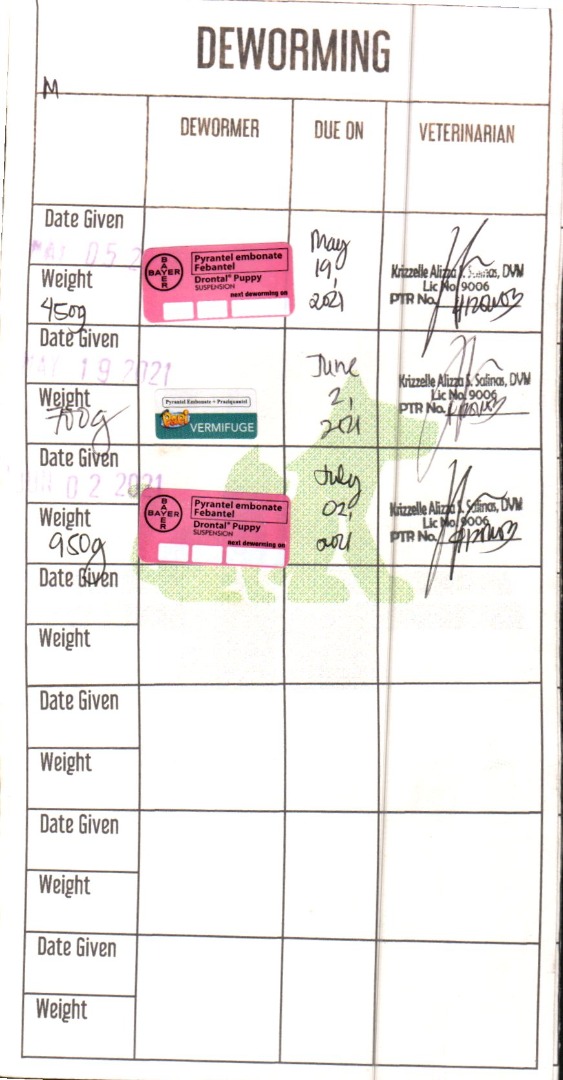 DEWORMING
M
DEWORMER DUE ON VETERINARIAN
Date Given
05 2
Weight
450g
BAYER
BAYER
Pyrantel embonate
Febantel
Drontal® Puppy
SUSPENSION
next deworming on
May
19,
2021
Krizzelle Alizza S. Salinas, DVM
Lic No. 9006
PTR No.
Date Given
19 2021
Weight
700g
Pyrantel Embonate + Praziquantel
VERMIFUGE
June
2,
2021
Krizzelle Alizza S. Salinas, DVM
Lic No. 9006
PTR No.
Date Given
02 2021
Weight
950g
BAYER
BAYER
Pyrantel embonate
Febantel
Drontal® Puppy
SUSPENSION
next deworming on
July
02,
2021
Krizzelle Alizza S. Salinas, DVM
Lic No. 9006
PTR No.
Date Given
Weight
Date Given
Weight
Date Given
Weight
Date Given
Weight